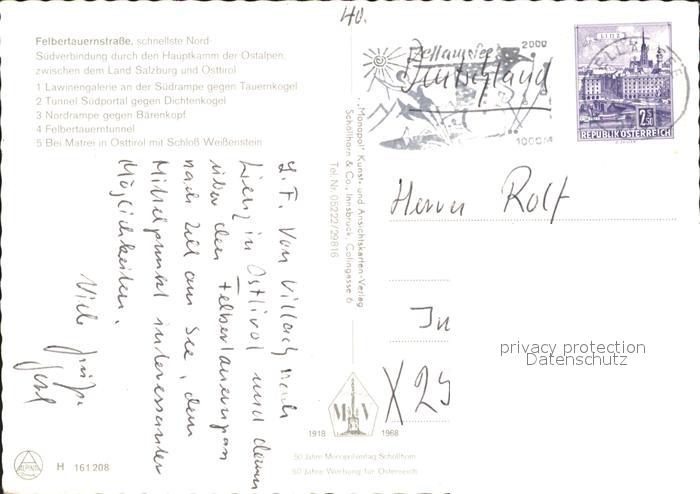 40.
Felbertauernstraße, schnellste Nord-
Südverbindung durch den Hauptkamm der Ostalpen,
zwischen dem Land Salzburg und Osttirol
1 Lawinengalerie an der Südrampe gegen Tauernkogel
2 Tunnel Südportal gegen Dichtenkogel
3 Nordrampe gegen Bärenkopf
4 Felbertauerntunnel
5 Bei Matrei in Osttirol mit Schloß Weißenstein
L. F. Von Villach nach
Lienz in Osttirol und dann
über den Felbertauernpass
nach Zell am See, dem
Mittelpunkt interessanter
Möglichkeiten.
Viele Grüße
„Monopol" Kunst- und Ansichtskarten-Verlag
Schöllhorn & Co., Innsbruck, Colingasse 6
Tel. Nr. 05222/29816
2000
1000M
LINZ
2.50
REPUBLIK ÖSTERREICH
Deutschland
Herrn Rolf
In
X 25
privacy protection
Datenschutz
M V
1918 1968
50 Jahre Monopolverlag Schöllhorn
50 Jahre Werbung für Österreich
ALPINE
H 161208